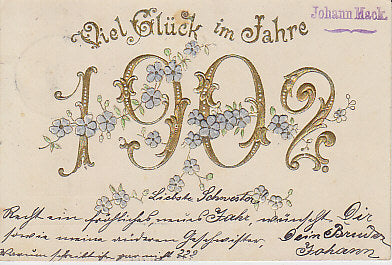 Viel Glück im Jahre
Johann Mack.
1902
Liebste Schwester
Recht ein fröhliches, neues Jahr wünscht Dir
sowie meine anderen Geschwister, Dein Bruder
Warum schreibst gar nicht ??? Johann